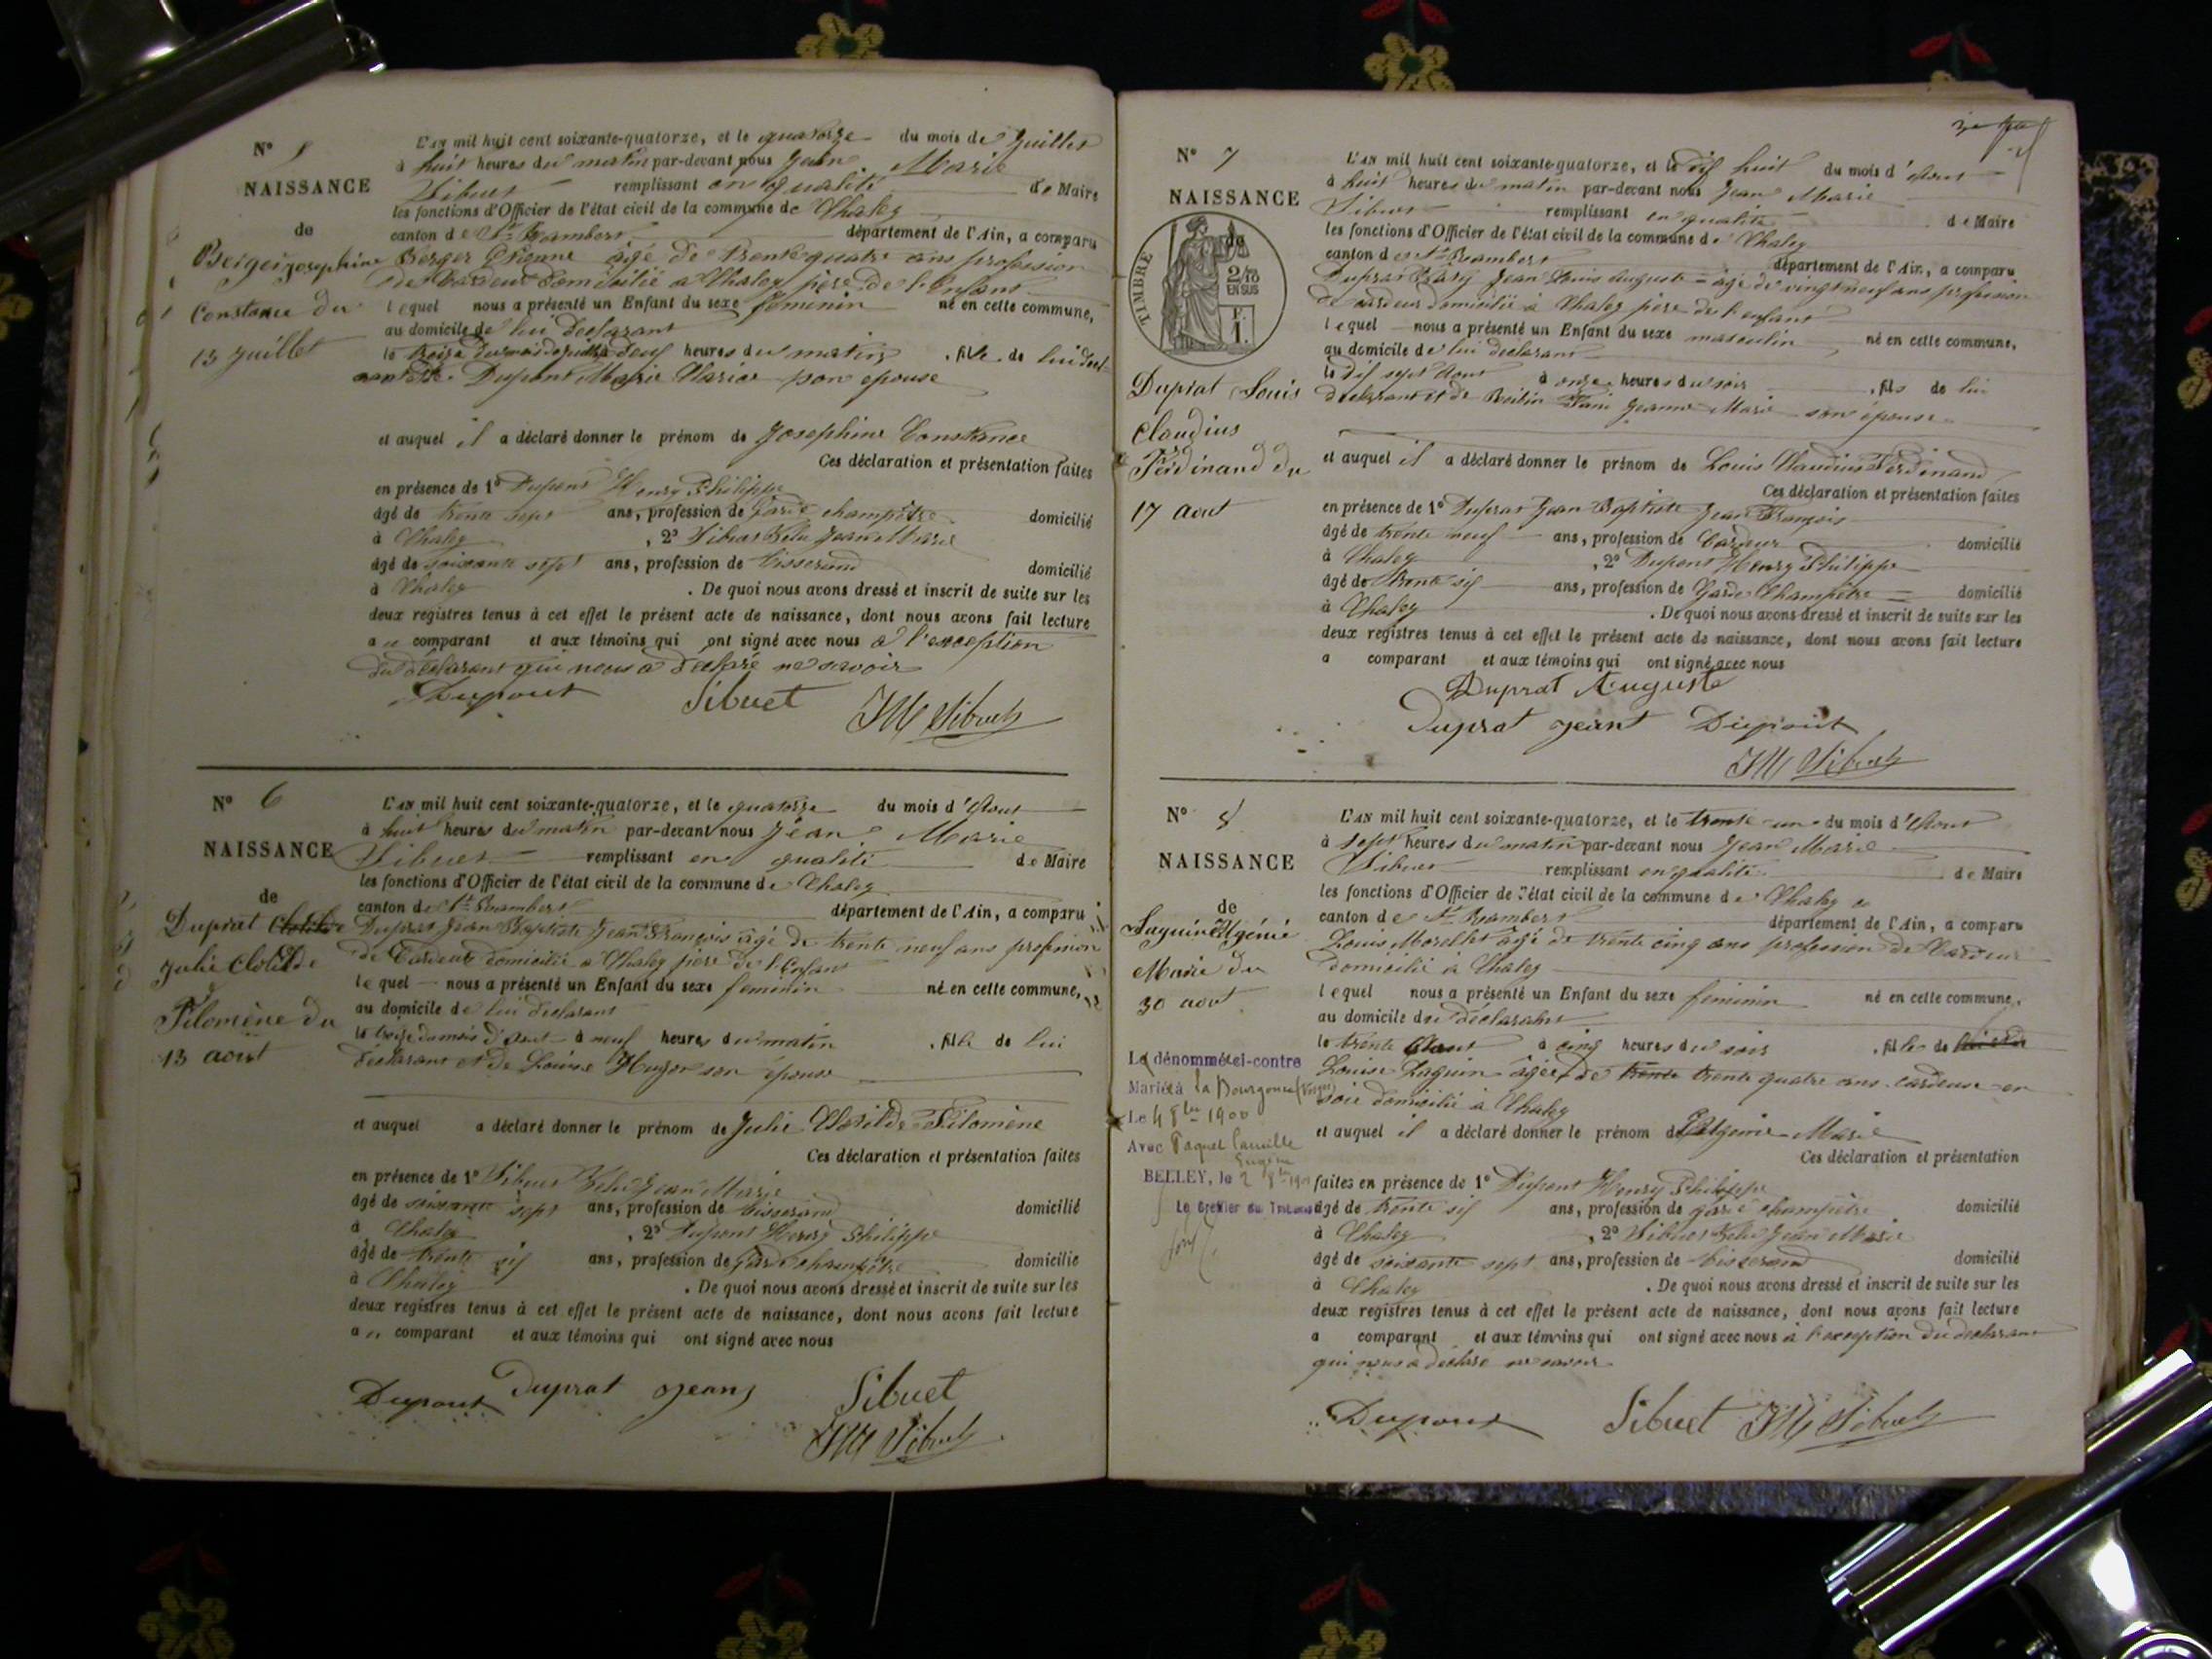 N° 5
NAISSANCE
de
Berger Josephine
Constance du
13 Juillet
L'AN mil huit cent soixante-quatorze, et le quatorze du mois de Juillet
à huit heures du matin par-devant nous Jean Marie
Sibuet remplissant en qualité de Maire
les fonctions d'Officier de l'état civil de la commune de Chaley
canton de St Rambert département de l'Ain, a comparu
Berger Etienne âgé de trente quatre ans profession
de Cardeur domicilié à Chaley père de l'Enfant
lequel nous a présenté un Enfant du sexe feminin né en cette commune,
au domicile de lui declarant
le treize du mois de juillet à heures du matin, fille de lui decl-
arant et de Dupont Marie Clarice son epouse
et auquel il a déclaré donner le prénom de Josephine Constance
Ces déclaration et présentation faites
en présence de 1° Dupont Henry Philippe
âgé de trente sept ans, profession de garde champêtre domicilié
à Chaley, 2° Sibuet Jean Marie
âgé de soixante sept ans, profession de tisserand domicilié
à Chaley. De quoi nous avons dressé et inscrit de suite sur les
deux registres tenus à cet effet le présent acte de naissance, dont nous avons fait lecture
au comparant et aux témoins qui ont signé avec nous à l'exception
du déclarant qui nous a déclaré ne savoir
Dupont Sibuet JM Sibuet
N° 6
NAISSANCE
de
Duprat Clotilde
Julie Clotilde
Filomène du
13 aout
L'AN mil huit cent soixante-quatorze, et le quatorze du mois d'Aout
à huit heures du matin par-devant nous Jean Marie
Sibuet remplissant en qualité de Maire
les fonctions d'Officier de l'état civil de la commune de Chaley
canton de St Rambert département de l'Ain, a comparu
Duprat Jean Baptiste Jean François âgé de trente neuf ans profession
de Cardeur domicilié à Chaley père de l'Enfant
lequel nous a présenté un Enfant du sexe feminin né en cette commune,
au domicile de lui declarant
le treize du mois d'Aout à neuf heures du matin, fille de lui
déclarant et de Louise Hugon son épouse
et auquel a déclaré donner le prénom de Julie Clotilde Filomène
Ces déclaration et présentation faites
en présence de 1° Sibuet Jean Marie
âgé de soixante sept ans, profession de tisserand domicilié
à Chaley, 2° Dupont Henry Philippe
âgé de trente six ans, profession de garde champêtre domicilié
à Chaley. De quoi nous avons dressé et inscrit de suite sur les
deux registres tenus à cet effet le présent acte de naissance, dont nous avons fait lecture
a comparant et aux témoins qui ont signé avec nous
Dupont Duprat Jean Sibuet
JM Sibuet
N° 7
NAISSANCE
de
TIMBRE
2/10
EN SUS
F.
1.
Duprat Louis
Claudius
Ferdinand du
17 aout
L'AN mil huit cent soixante-quatorze, et le dix huit du mois d'Aout
à huit heures du matin par-devant nous Jean Marie
Sibuet remplissant en qualité de Maire
les fonctions d'Officier de l'état civil de la commune de Chaley
canton de St Rambert département de l'Ain, a comparu
Duprat Jean Louis Auguste âgé de vingt neuf ans profession
de cardeur domicilié à Chaley père de l'enfant
lequel nous a présenté un Enfant du sexe masculin né en cette commune,
au domicile de lui déclarant
le dix sept Aout à onze heures du soir, fils de lui
déclarant et de Jeanne Marie son épouse
et auquel il a déclaré donner le prénom de Louis Claudius Ferdinand
Ces déclaration et présentation faites
en présence de 1° Duprat Jean Baptiste Jean François
âgé de trente neuf ans, profession de Cardeur domicilié
à Chaley, 2° Dupont Henry Philippe
âgé de trente six ans, profession de Garde Champêtre domicilié
à Chaley. De quoi nous avons dressé et inscrit de suite sur les
deux registres tenus à cet effet le présent acte de naissance, dont nous avons fait lecture
a comparant et aux témoins qui ont signé avec nous
Duprat Auguste
Duprat Jean Dupont
JM Sibuet
N° 8
NAISSANCE
de
Marie du
30 aout
Le dénommé ci-contre
Marié à la Bourgonce (Vosges)
Le 4 8bre 1900
Avec Paquet Camille
Eugène
BELLEY, le
Le Greffier du Tribunal
L'AN mil huit cent soixante-quatorze, et le trente un du mois d'Aout
à sept heures du matin par-devant nous Jean Marie
Sibuet remplissant en qualité de Maire
les fonctions d'Officier de l'état civil de la commune de Chaley
canton de St Rambert département de l'Ain, a comparu
Louis Morellet âgé de trente cinq ans profession de Cardeur
domicilié à Chaley
lequel nous a présenté un Enfant du sexe feminin né en cette commune,
au domicile du déclarant
le trente Aout à cinq heures du soir, fille de
Louise Laguin âgée de trente trente quatre ans cardeuse en
soie domicilié à Chaley
et auquel il a déclaré donner le prénom de Marie
Ces déclaration et présentation
faites en présence de 1° Dupont Henry Philippe
âgé de trente six ans, profession de garde champêtre domicilié
à Chaley, 2° Sibuet Jean Marie
âgé de soixante sept ans, profession de tisserand domicilié
à Chaley. De quoi nous avons dressé et inscrit de suite sur les
deux registres tenus à cet effet le présent acte de naissance, dont nous avons fait lecture
a comparant et aux témoins qui ont signé avec nous à l'exception du declarant
qui nous a déclaré ne savoir
Dupont Sibuet JM Sibuet